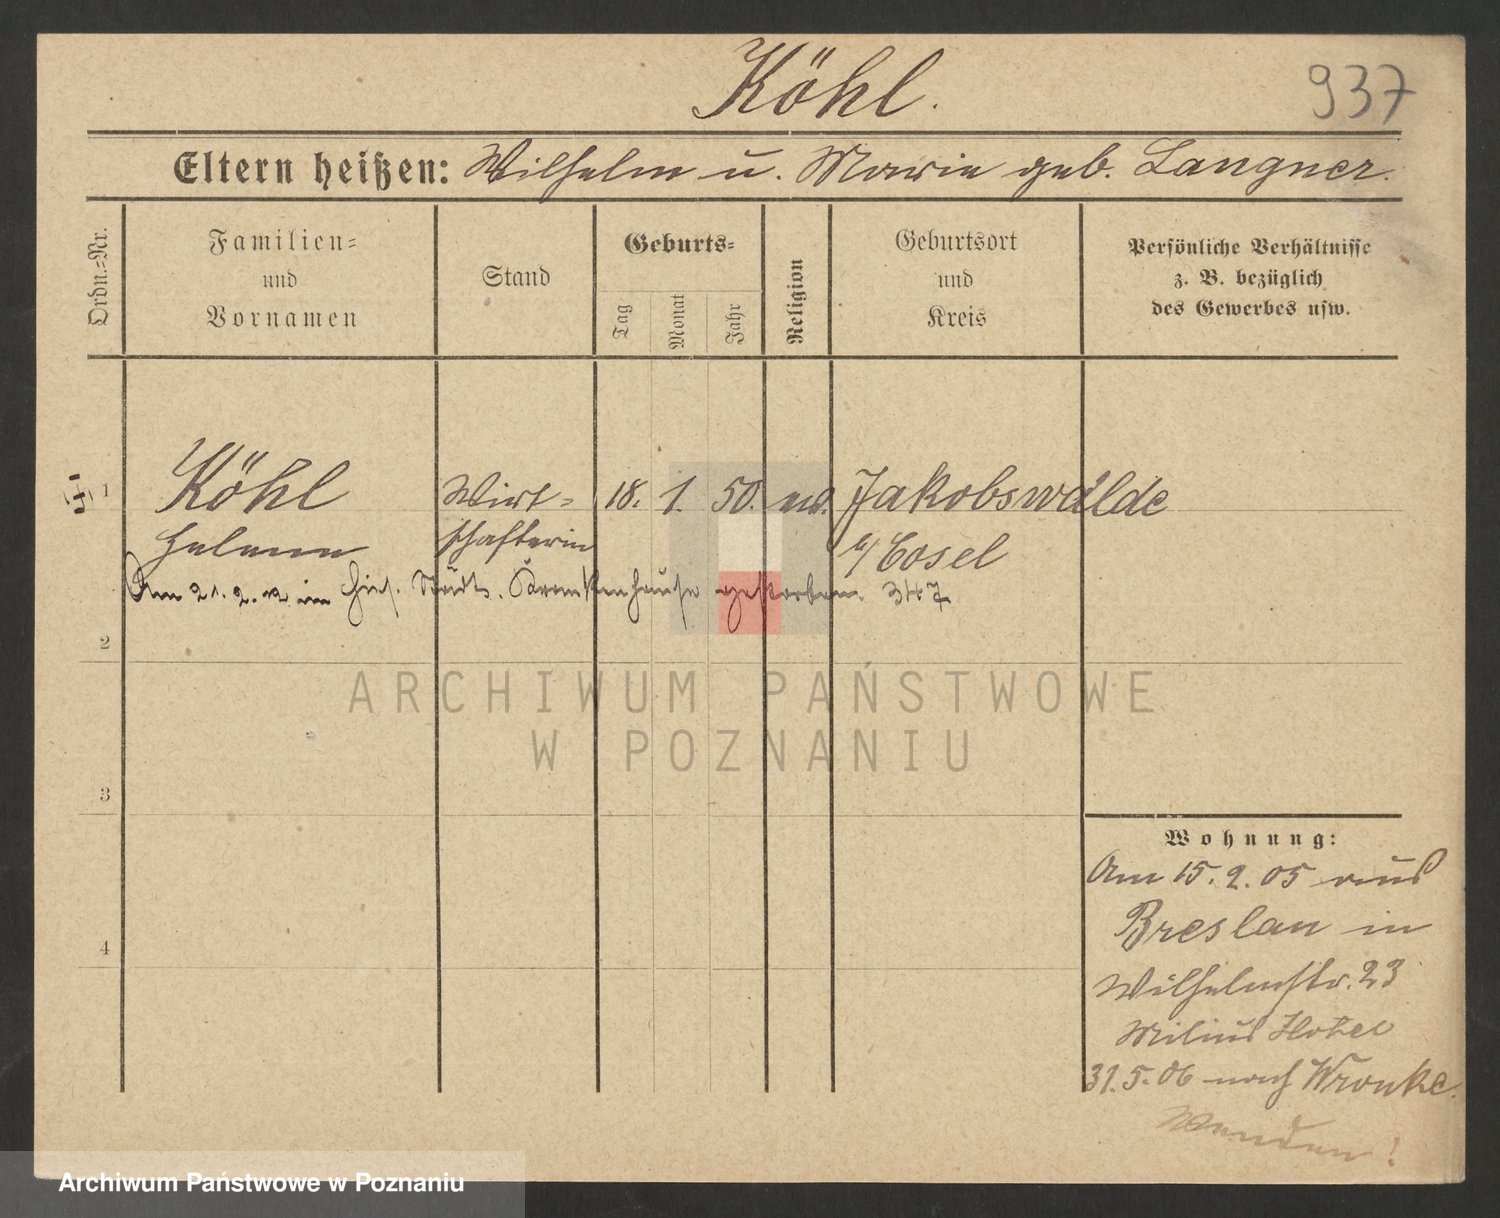 Köhl.
937
Eltern heißen: Wilhelm u. Marie geb. Langner.
Ordn.-Nr.
Familien-
und
Vornamen
Stand
Geburts-
Tag
Monat
Jahr
Religion
Geburtsort
und
Kreis
Persönliche Verhältnisse
z. B. bezüglich
des Gewerbes usw.
1
Köhl Wirt- 18. 1. 50. ev. Jakobswalde
Helene schafterin b/ Cosel
Am 21. 2. 12 im hies. Städt. Krankenhause gestorben. 347
2
ARCHIWUM PAŃSTWOWE
W POZNANIU
3
Wohnung:
Am 15. 2. 05 aus
Breslau in
4
Wilhelmstr. 23
Milius Hotel
31. 5. 06 nach Wronke.
Wenden!
Archiwum Państwowe w Poznaniu